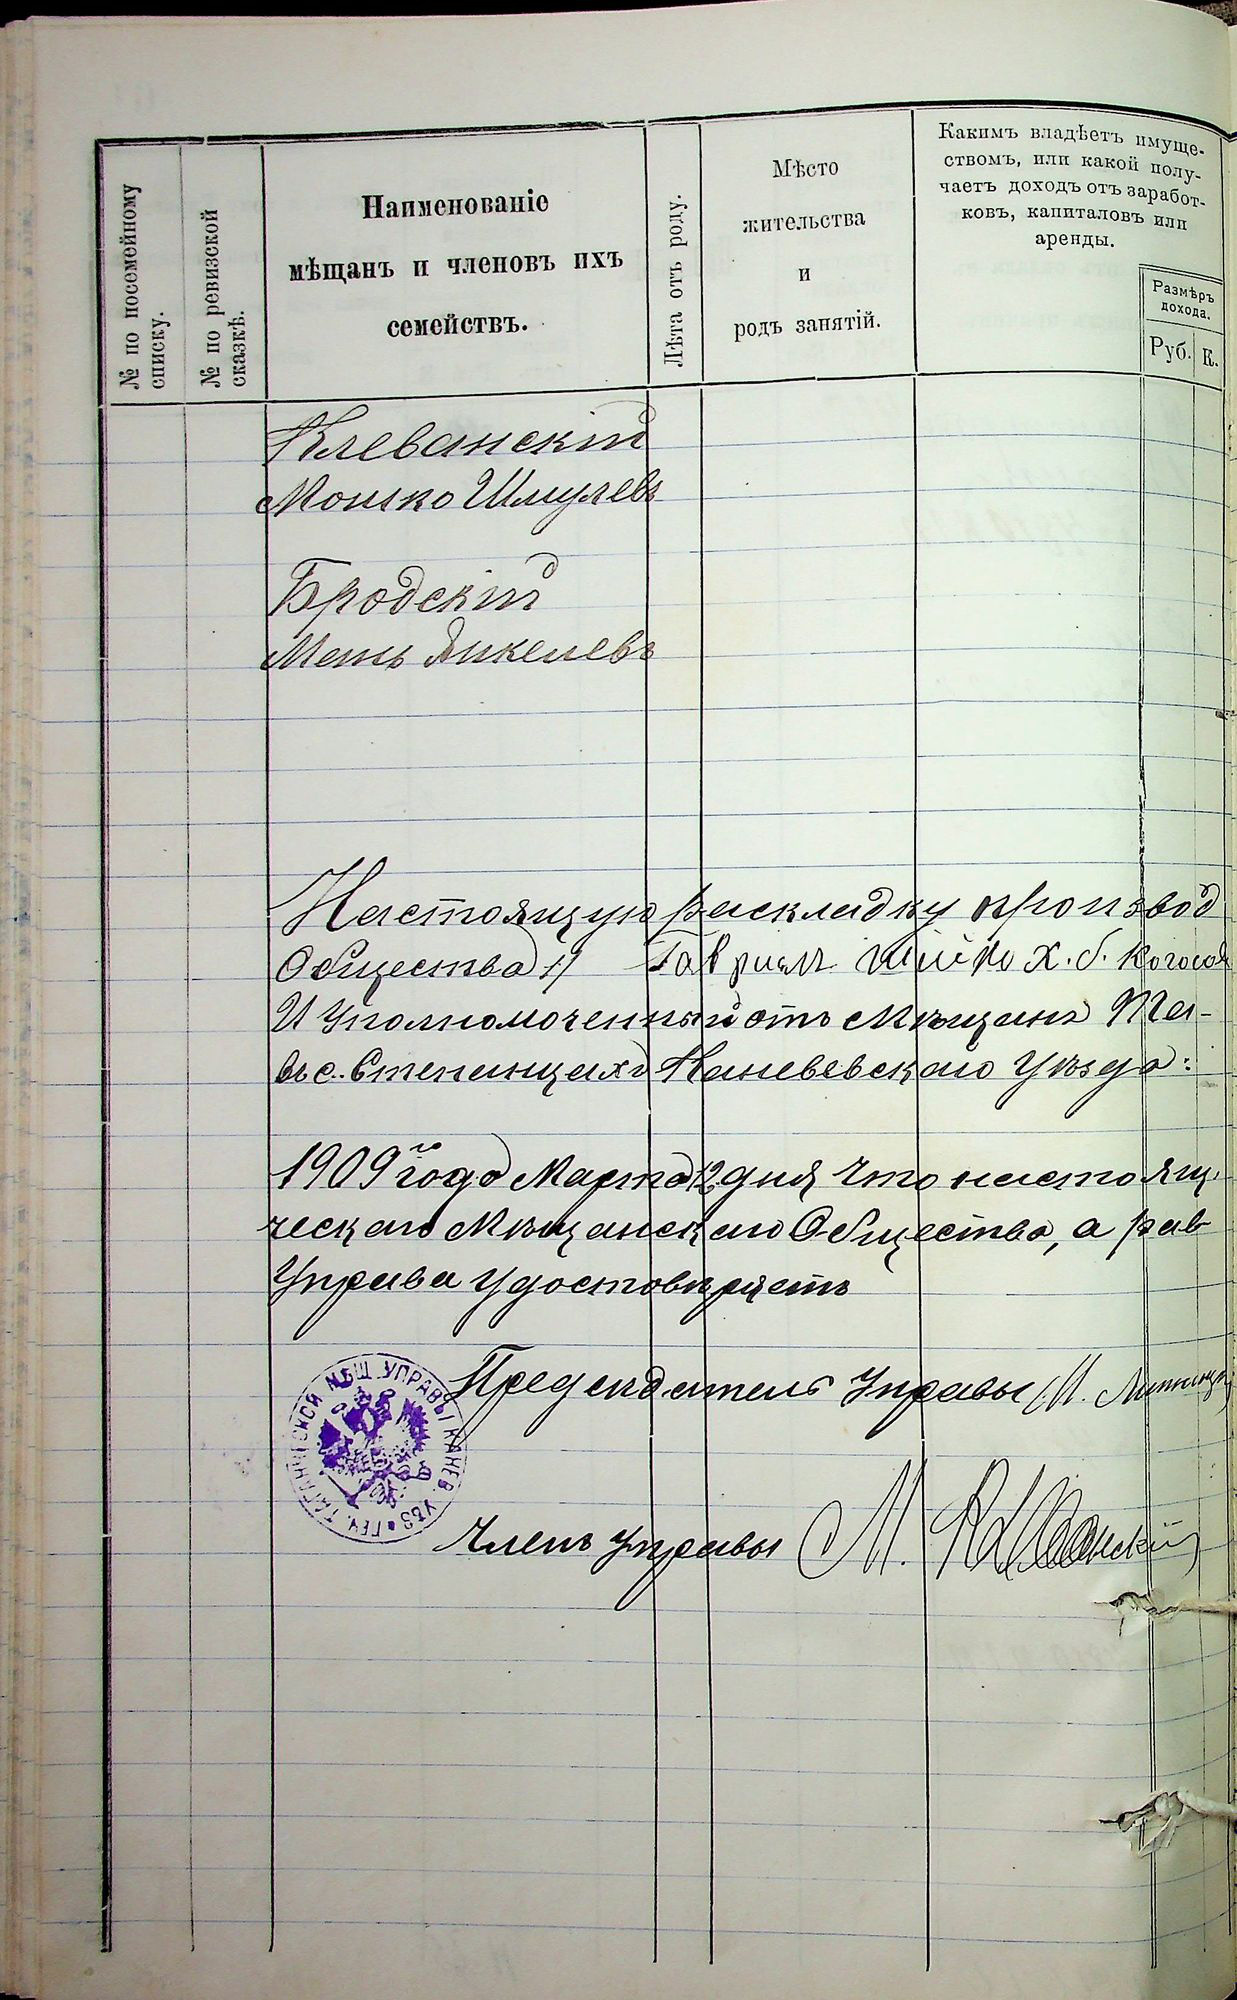 № по посемейному
списку.
№ по ревизской
сказкѣ.
Наименованіе
мѣщанъ и членовъ ихъ
семействъ.
Лѣта отъ роду.
Мѣсто
жительства
и
родъ занятій.
Какимъ владѣетъ имуще-
ствомъ, или какой полу-
чаетъ доходъ отъ заработ-
ковъ, капиталовъ или
аренды.
Размѣръ
дохода.
Руб.
К.
Клеванскій
Мошко Шмулевъ
Бродскій
Мень Янкелевъ
Настоящую раскладку производ
Общества 1/ Гавриил
И Уполномоченный отъ Мѣщанъ Та-
въ с. Степанцахъ Каневевскаго Уѣзда:
1909го года Марта 12 дня что настоящ
ческаго Мѣщанскаго Общества, а рав
Управа удостовѣряетъ
Предсѣдатель Управы
ТАГАНЧЕСКОЙ МѢЩ. УПРАВЫ КАНЕВ. УѢЗ. ПЕЧ.
Членъ Управы М. Клеванскій